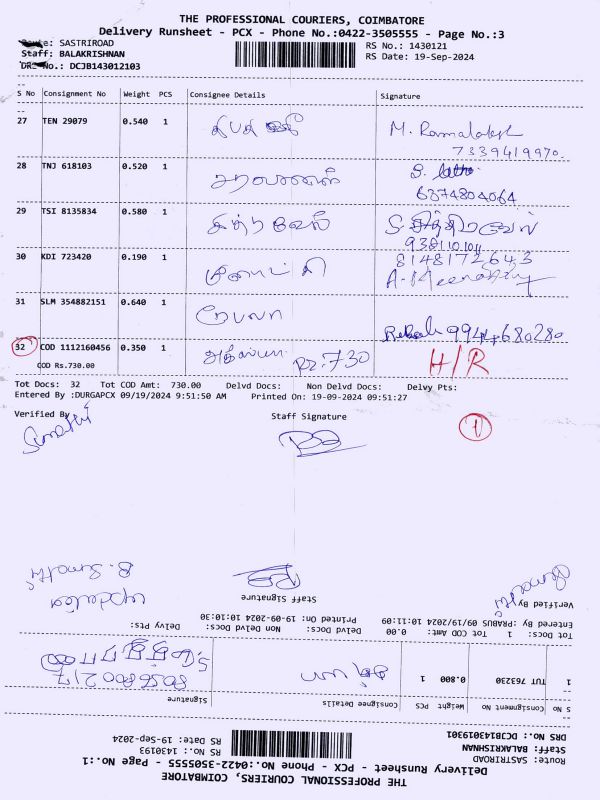 THE PROFESSIONAL COURIERS, COIMBATORE
Delivery Runsheet - PCX - Phone No.:0422-3505555 - Page No.:3
Route: SASTRIROAD
RS No.: 1430121
Staff: BALAKRISHNAN
RS Date: 19-Sep-2024
DRS No.: DCJB143012103
S No Consignment No Weight PCS Consignee Details Signature
27 TEN 29079 0.540 1 M. Ramalaksh
7339419970.
28 TNJ 618103 0.520 1 சரவணன் S.
6374804064
29 TSI 8135834 0.580 1 S.
9381101011
30 KDI 723420 0.190 1 8148172643
A. Meenakshy
31 SLM 354882151 0.640 1 ரேபலா
32 COD 1112160456 0.350 1 Rs.730 H/R
COD Rs.730.00
Tot Docs: 32 Tot COD Amt: 730.00 Delvd Docs: Non Delvd Docs: Delvy Pts:
Entered By :DURGAPCX 09/19/2024 9:51:50 AM Printed On: 19-09-2024 09:51:27
Verified By
Staff Signature
Sumathi
1
THE PROFESSIONAL COURIERS, COIMBATORE
Delivery Runsheet - PCX - Phone No.:0422-3505555 - Page No.:1
Route: SASTRIROAD
RS No.: 1430193
Staff: BALAKRISHNAN
RS Date: 19-Sep-2024
DRS No.: DCJB143019301
S No Consignment No Weight PCS Consignee Details Signature
1 TUT 763230 0.800 1 8056800217
Tot Docs: 1 Tot COD Amt: 0.00 Delvd Docs: Non Delvd Docs: Delvy Pts:
Entered By :PRABUS 09/19/2024 10:11:09 Printed On: 19-09-2024 10:10:30
Verified By
Staff Signature
updated
B. Smathi